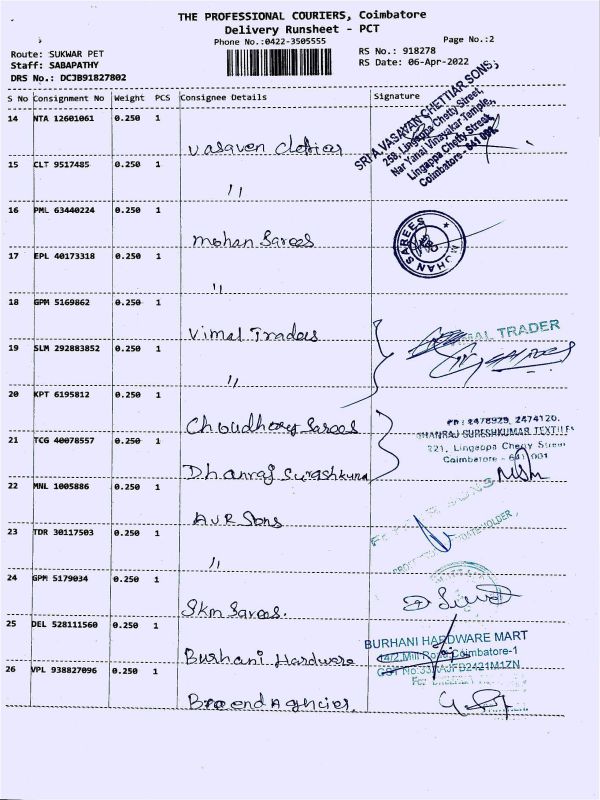 THE PROFESSIONAL COURIERS, Coimbatore
Delivery Runsheet - PCT
Phone No.:0422-3505555
Page No.:2
Route: SUKWAR PET
RS No.: 918278
Staff: SABAPATHY
RS Date: 06-Apr-2022
DRS No.: DCJB91827802
S No Consignment No Weight PCS Consignee Details Signature
14 NTA 12601061 0.250 1 Vasaven Chettiar
SRI A. VASAYAN CHETTIAR SONS,
258, Lingappa Chetty Street,
Nar Yanai Vinayakar Temple,
Lingappa Chetty Street,
Coimbatore - 641 001
15 CLT 9517485 0.250 1 〃
16 PML 63440224 0.250 1 Mohan Sarees
MOHAN SAREES
17 EPL 40173318 0.250 1 〃
18 GPM 5169862 0.250 1 Vimal Traders
VIMAL TRADER
19 SLM 292883852 0.250 1 〃
20 KPT 6195812 0.250 1 Choudhery Sarees
PH : 2478929, 2474120.
DHANRAJ SURESHKUMAR TEXTILES
321, Lingappa Chetty Street
Coimbatore - 641 001
21 TCG 40078557 0.250 1 Dhanraj Sureshkuma
22 MNL 1005886 0.250 1 AVR Sons
23 TDR 30117503 0.250 1 〃
24 GPM 5179034 0.250 1 Skm Sarees.
25 DEL 528111560 0.250 1 Burhani Hardware
BURHANI HARDWARE MART
14/2, Mill Road, Coimbatore-1
26 VPL 938827096 0.250 1